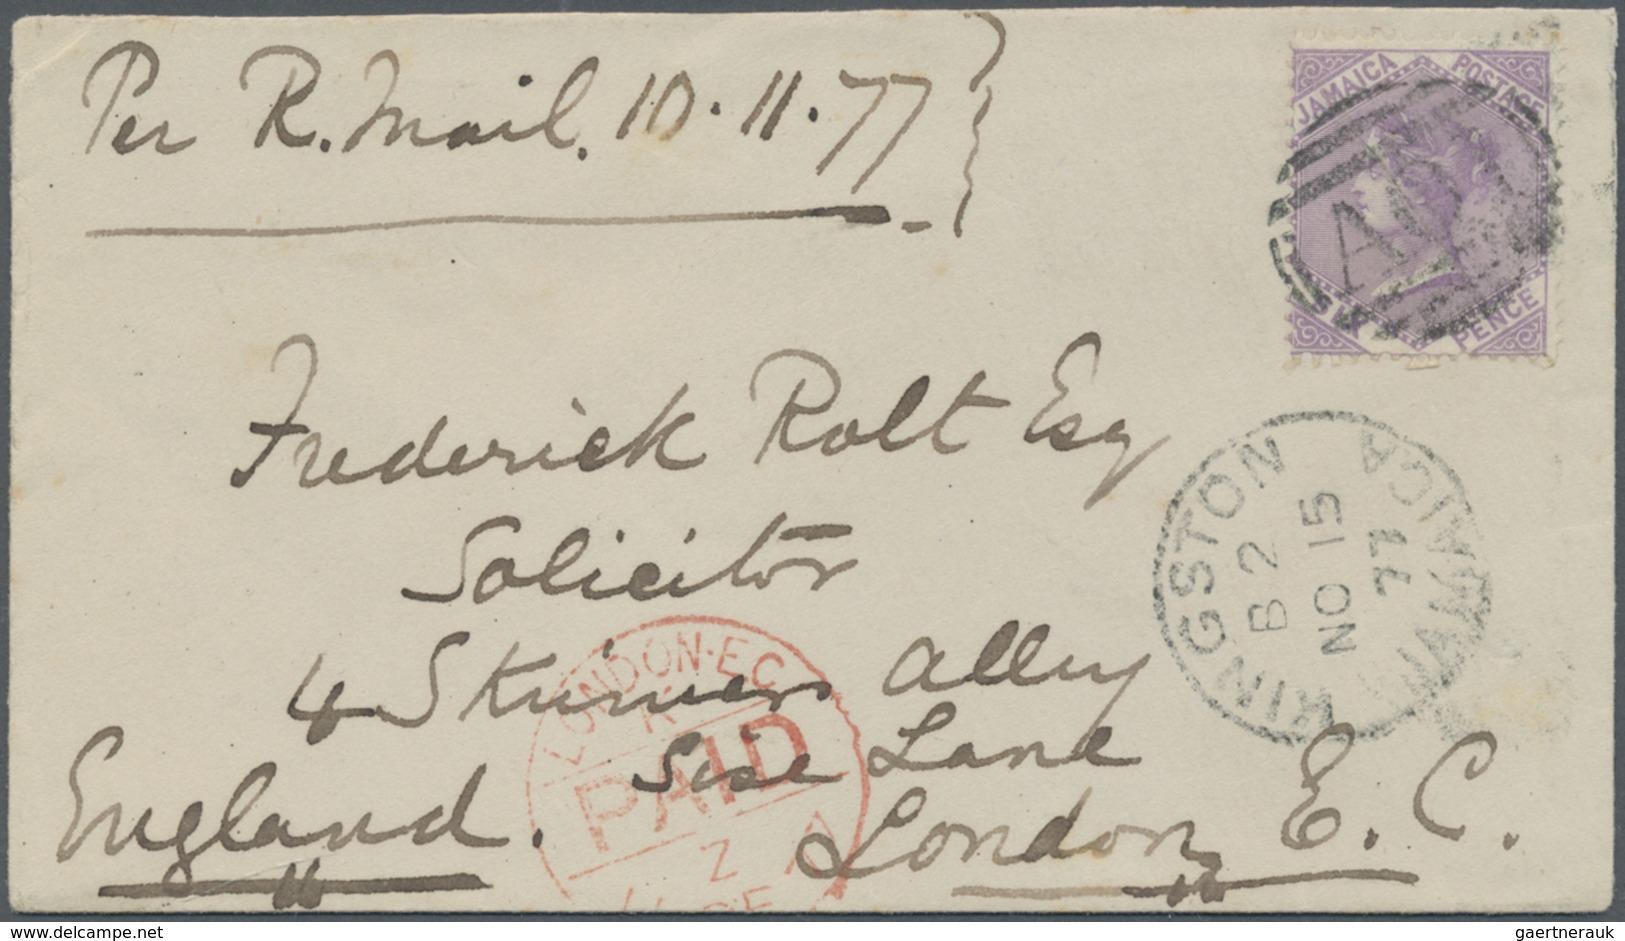 Per R. Mail. 10.11.77
JAMAICA POSTAGE
A
PENCE
Frederick Rolt Esq
Solicitor
4 Skinners Alley
Sise Lane
London E. C.
England.
KINGSTON JAMAICA
B 2
NO 15
77
LONDON·E.C
PAID
Z
delcampe.net
gaertnerauk